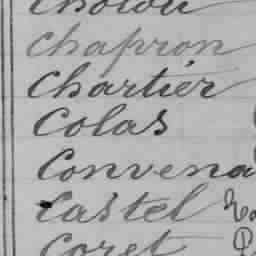 Chapron
Chartier
Colas
Convena
Castel
Coret